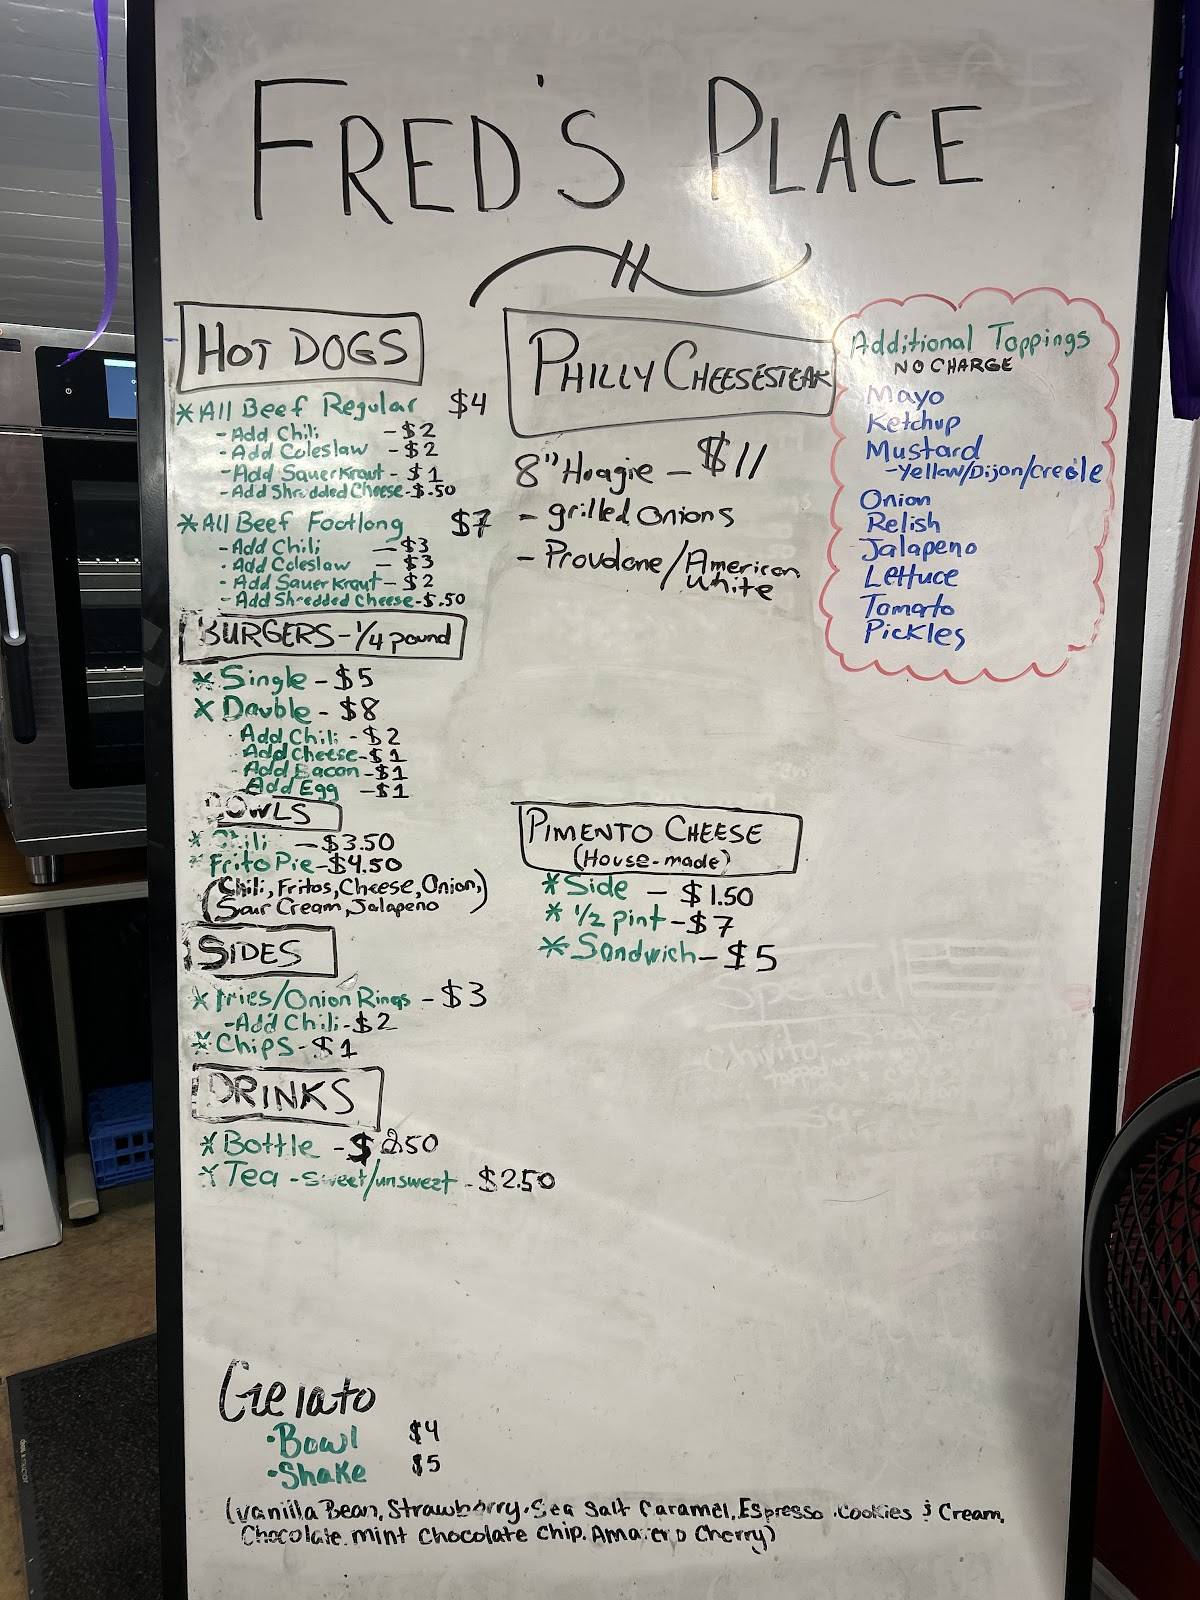 FRED'S PLACE
HOT DOGS
*All Beef Regular $4
-Add Chili -$2
-Add Coleslaw -$2
-Add SauerKraut -$1
-Add Shredded Cheese-$.50
*All Beef Footlong $7
-Add Chili -$3
-Add Coleslaw -$3
-Add SauerKraut -$2
-Add Shredded Cheese-$.50
BURGERS-1/4 pound
*Single -$5
*Double -$8
Add Chili -$2
Add Cheese -$1
Add Bacon -$1
Add Egg -$1
BOWLS
*Chili -$3.50
*Frito Pie -$4.50
(Chili, Fritos, Cheese, Onion,
Sour Cream, Jalapeno)
SIDES
*Fries/Onion Rings -$3
-Add Chili -$2
*Chips -$1
DRINKS
*Bottle -$2.50
*Tea -sweet/unsweet -$2.50
PHILLY CHEESESTEAK
8" Hoagie -$11
- grilled onions
- Provolone/American
White
PIMENTO CHEESE
(House-made)
*Side -$1.50
*1/2 pint -$7
*Sandwich -$5
Additional Toppings
NO CHARGE
Mayo
Ketchup
Mustard
-Yellow/Dijon/creole
Onion
Relish
Jalapeno
Lettuce
Tomato
Pickles
Gelato
·Bowl $4
·Shake $5
(Vanilla Bean, Strawberry, Sea Salt Caramel, Espresso, Cookies & Cream,
Chocolate, mint chocolate chip, Amareno Cherry)